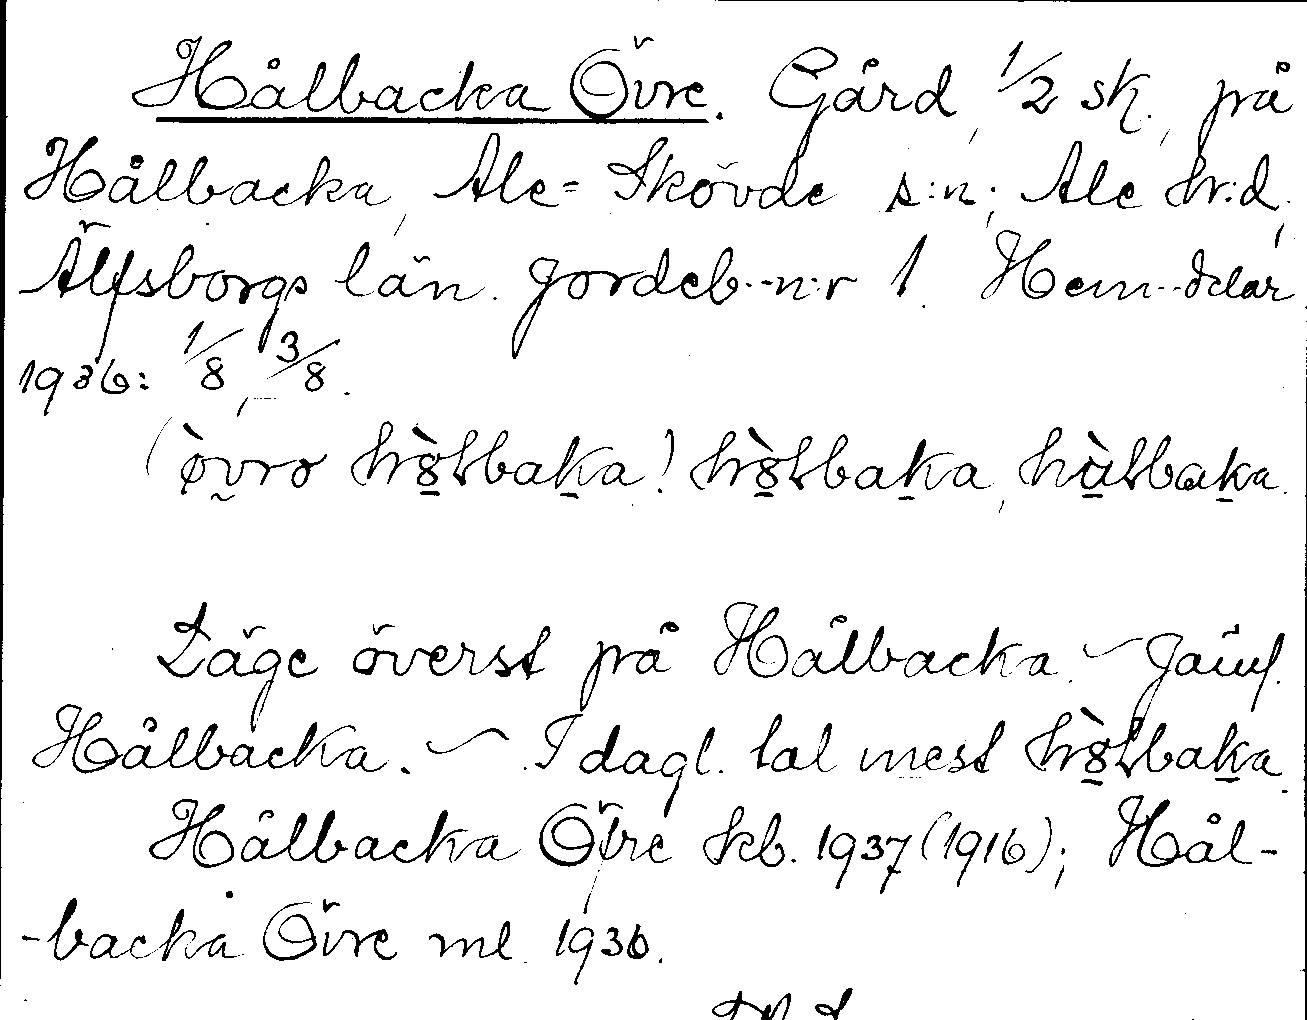 Hålbacka Övre. Gård, 1/2 sk., på
Hålbacka, Ale-Skövde s:n; Ale hr:d,
Älfsborgs län. Jordeb.-n:r 1. Hem.-delar
1936: 1/8, 3/8.
Läge överst på Hålbacka. ~ Jämf.
Hålbacka. ~ I dagl. tal mest
Hålbacka Övre kb. 1937 (1916); Hål-
-backa Övre ml. 1936.